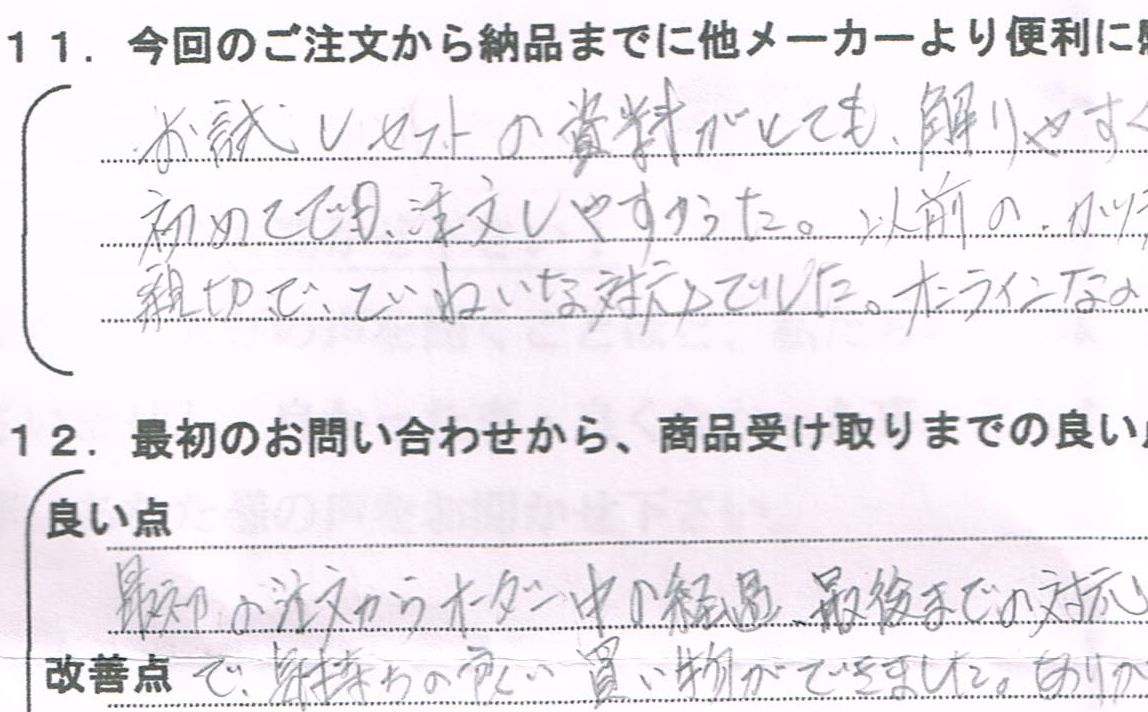 11. 今回のご注文から納品までに他メーカーより便利に
お試しセットの資料がとても、解りやすく
初めてでも、注文しやすかった。以前の、
親切で、ていねいな対応でした。オンラインなの
12. 最初のお問い合わせから、商品受け取りまでの良い
良い点
最初の注文からオーダー中の経過、最後までの対応
改善点 で、気持ちの良い買い物ができました。ありが